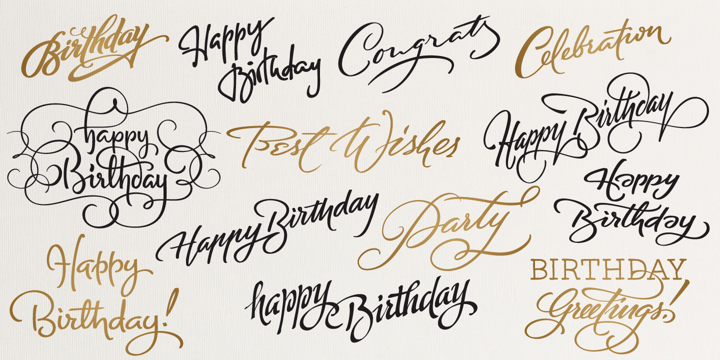 Birthday
Happy
Birthday
Congrats
Celebration
happy
Birthday
Best Wishes
Happy Birthday
Happy
Birthday
Happy Birthday
Party
Happy
Birthday!
happy Birthday
BIRTHDAY
Greetings!